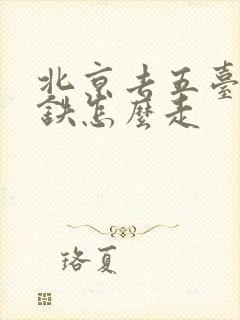 北京去五臺
鉄怎麼走
珞夏